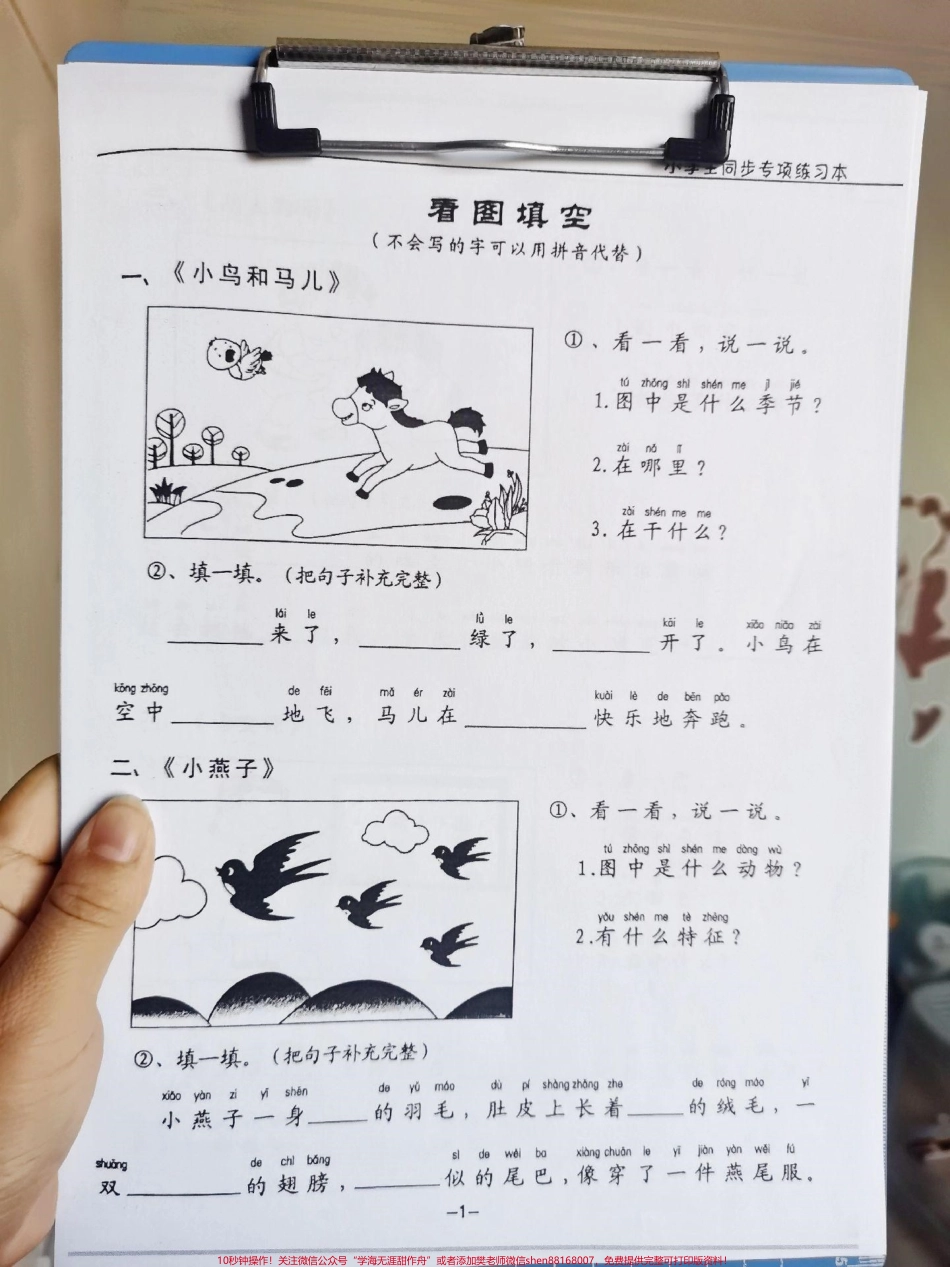 小学生同步专项练习本
看图填空
（不会写的字可以用拼音代替）
一、《小鸟和马儿》
①、看一看，说一说。
tú zhōng shì shén me jì jié
1.图中是什么季节？
zài nǎ lǐ
2.在哪里？
zài shén me me
3.在干什么？
②、填一填。（把句子补充完整）
lái le lǜ le kāi le xiǎo niǎo zài
______来了，______绿了，______开了。小鸟在
kōng zhōng de fēi mǎ ér zài kuài lè de bēn pǎo
空中______地飞，马儿在______快乐地奔跑。
二、《小燕子》
①、看一看，说一说。
tú zhōng shì shén me dòng wù
1.图中是什么动物？
yǒu shén me tè zhēng
2.有什么特征？
②、填一填。（把句子补充完整）
xiǎo yàn zi yī shēn de yǔ máo dù pí shàng zhǎng zhe de róng máo yī
小燕子一身____的羽毛，肚皮上长着____的绒毛，一
shuāng de chì bǎng sì de wěi ba xiàng chuān le yī jiàn yàn wěi fú
双______的翅膀，______似的尾巴，像穿了一件燕尾服。
-1-
10秒钟操作！关注微信公众号“学海无涯甜作舟”或者添加樊老师微信shen88168007，免费提供完整可打印版资料！